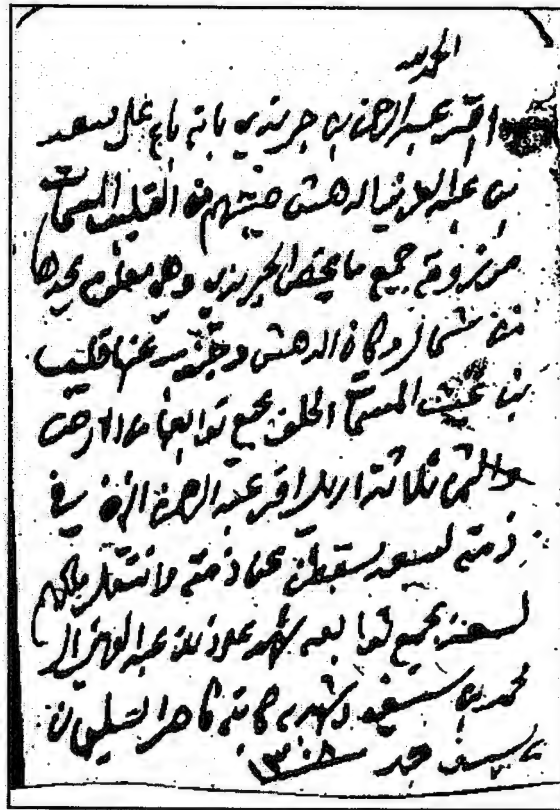 الحمد لله
اقر عبد الرحمن بن جريذي بانه باع على سعد
بن عبد العزيز الدهش من القليب المسمات
مرزوقه جميع ما يخص الجريذي وهي معلومه يحدها
من شمال وكان الدهش وجنوب عنها قليب
بن غيث المسمات الحلوه بجميع توابعها من الارض
والثمن ثلاثة اريل اقر عبد الرحمن انهن في
ذمته لسعد سقطن عن ذمته وانتقل ملكهم
لسعد بجميع توابعه شهد على ذلك عبد العزيز ال
محمد بن سعود وشهد به كاتبه ناصر السليمان
بن سيف سنة ١٣٠٨